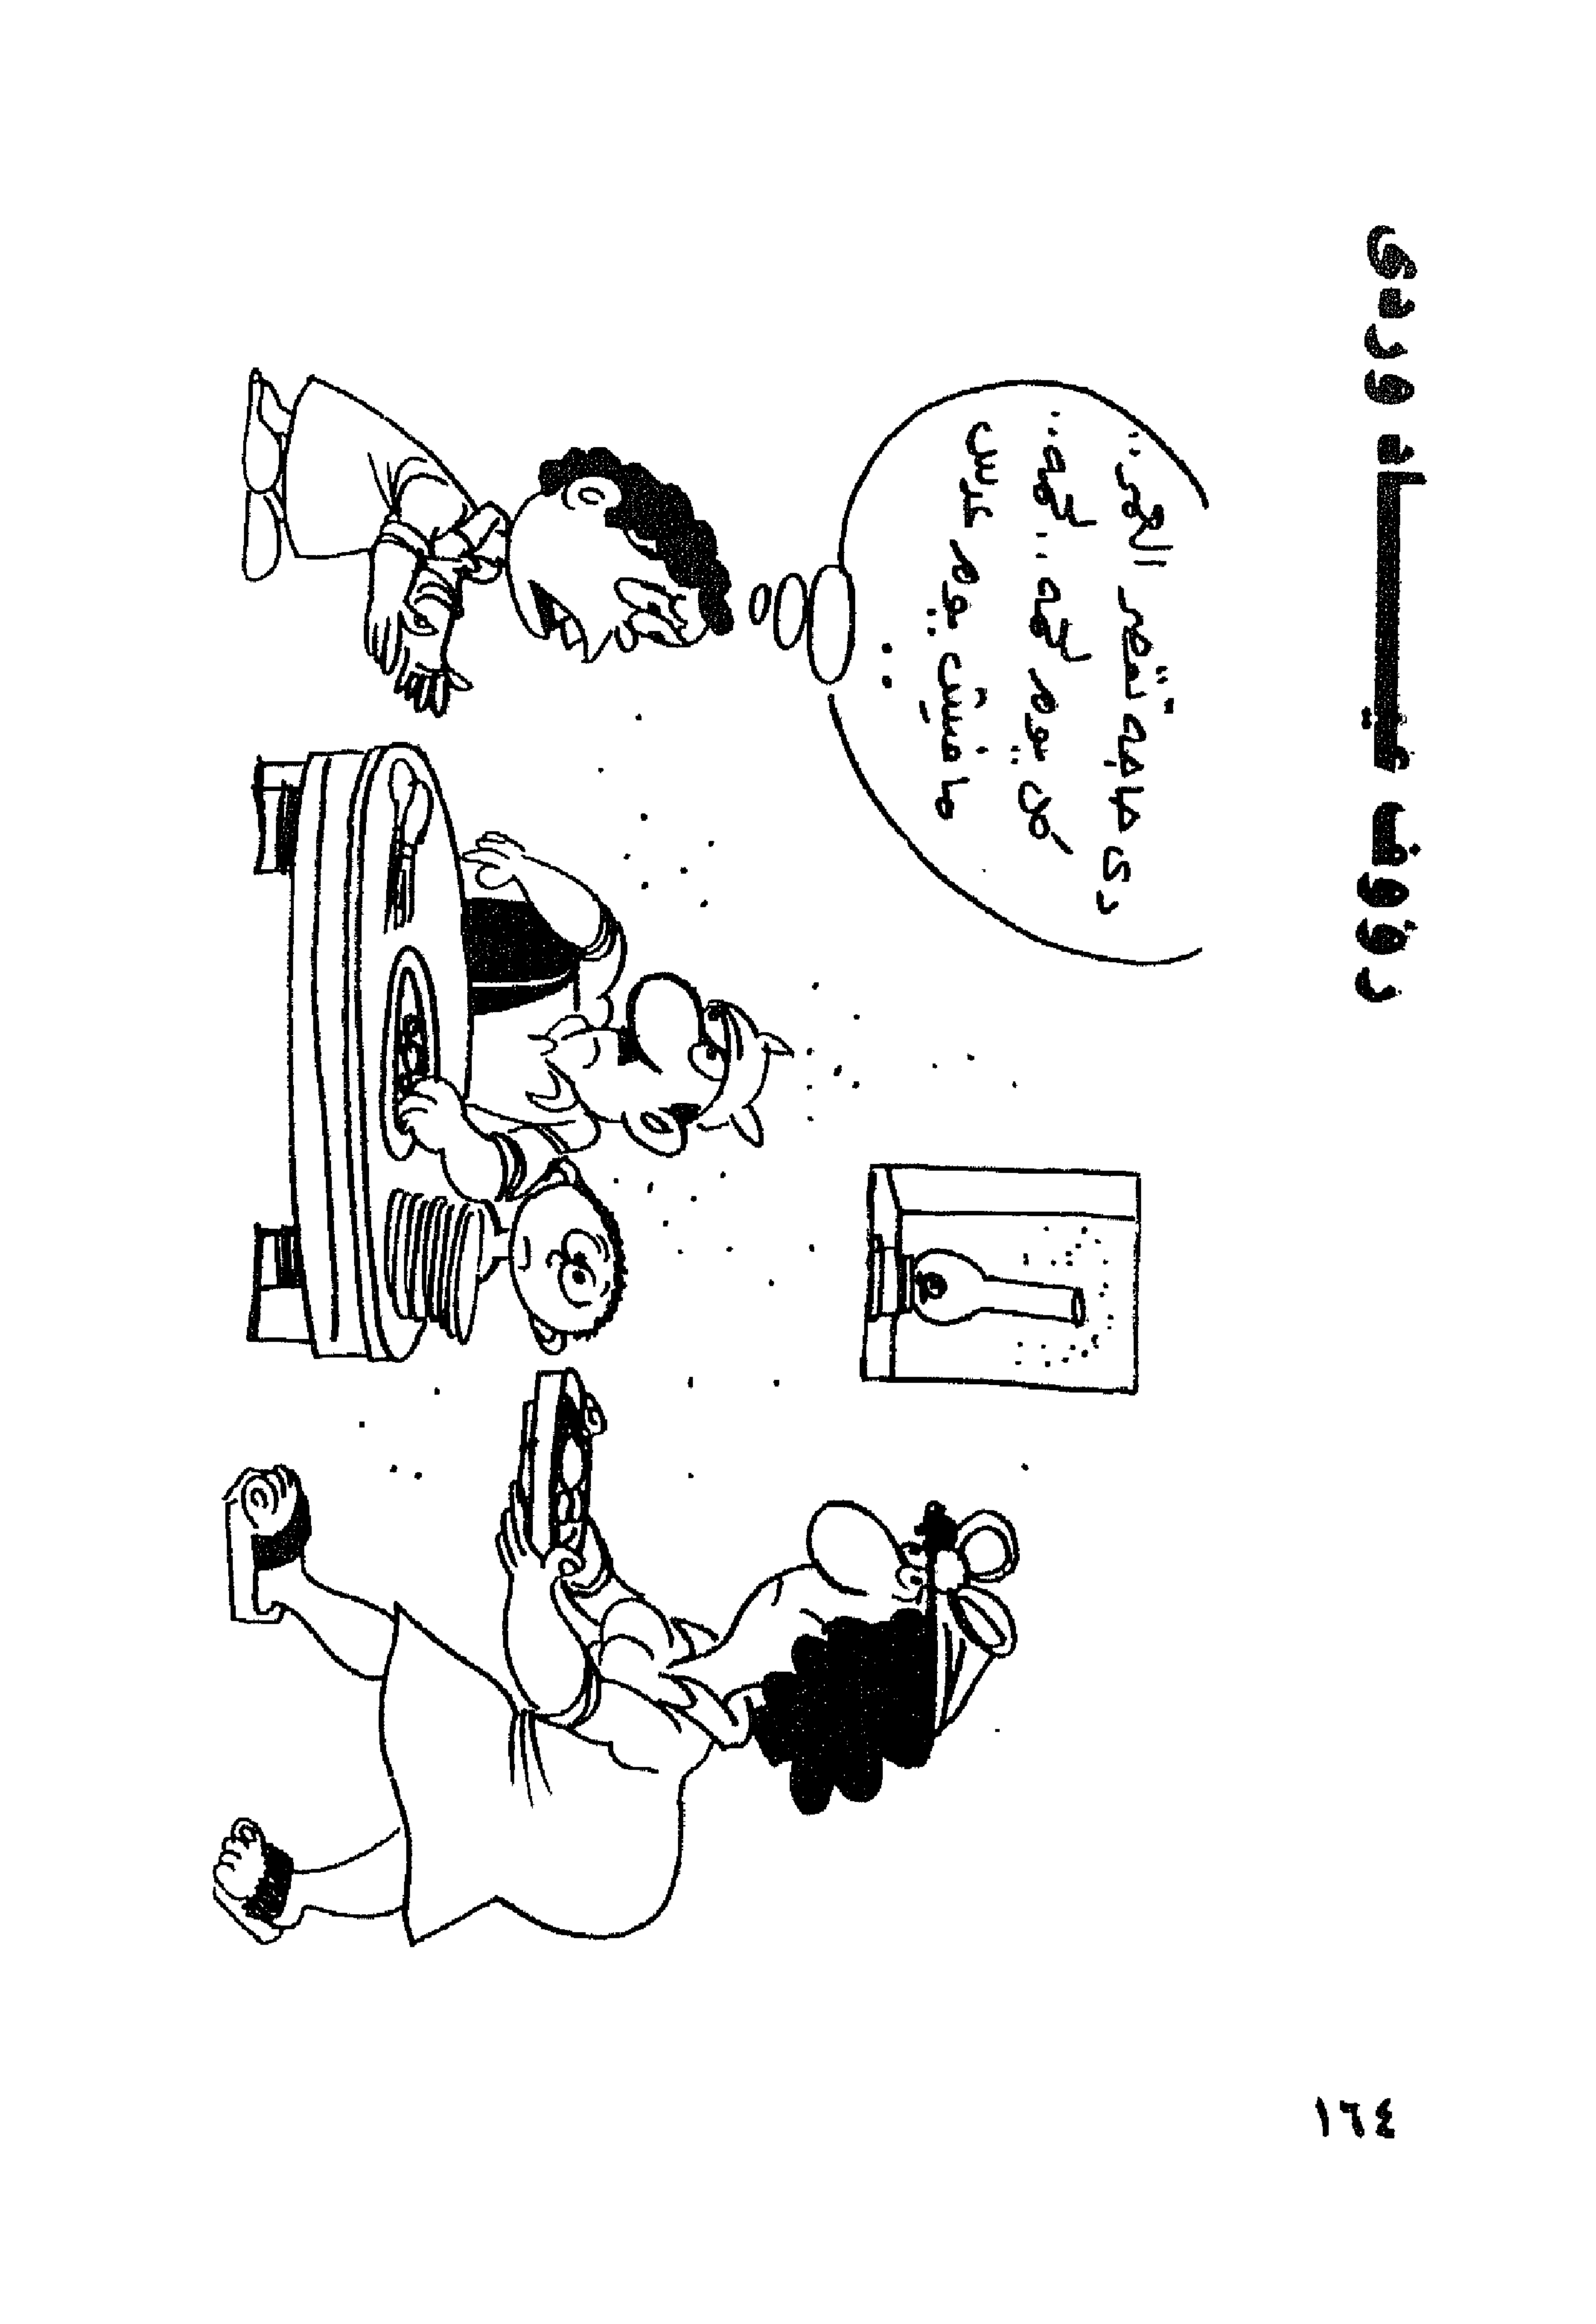 رؤوف عيـــاد وردى
دى حاجة تقصر العمر ..
كل يوم لحمه .. لحمه ..
مافيش يوم عدس
..
١٦٤